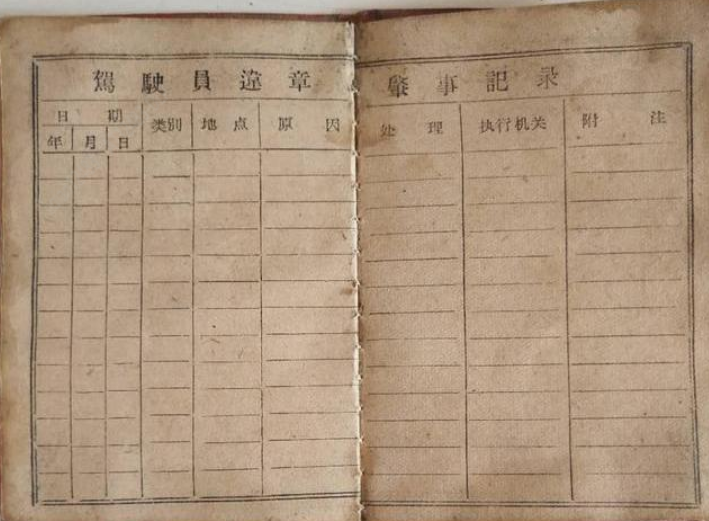 駕駛員違章肇事記录
日期 类別 地点 原因 处理 执行机关 附注
年 月 日